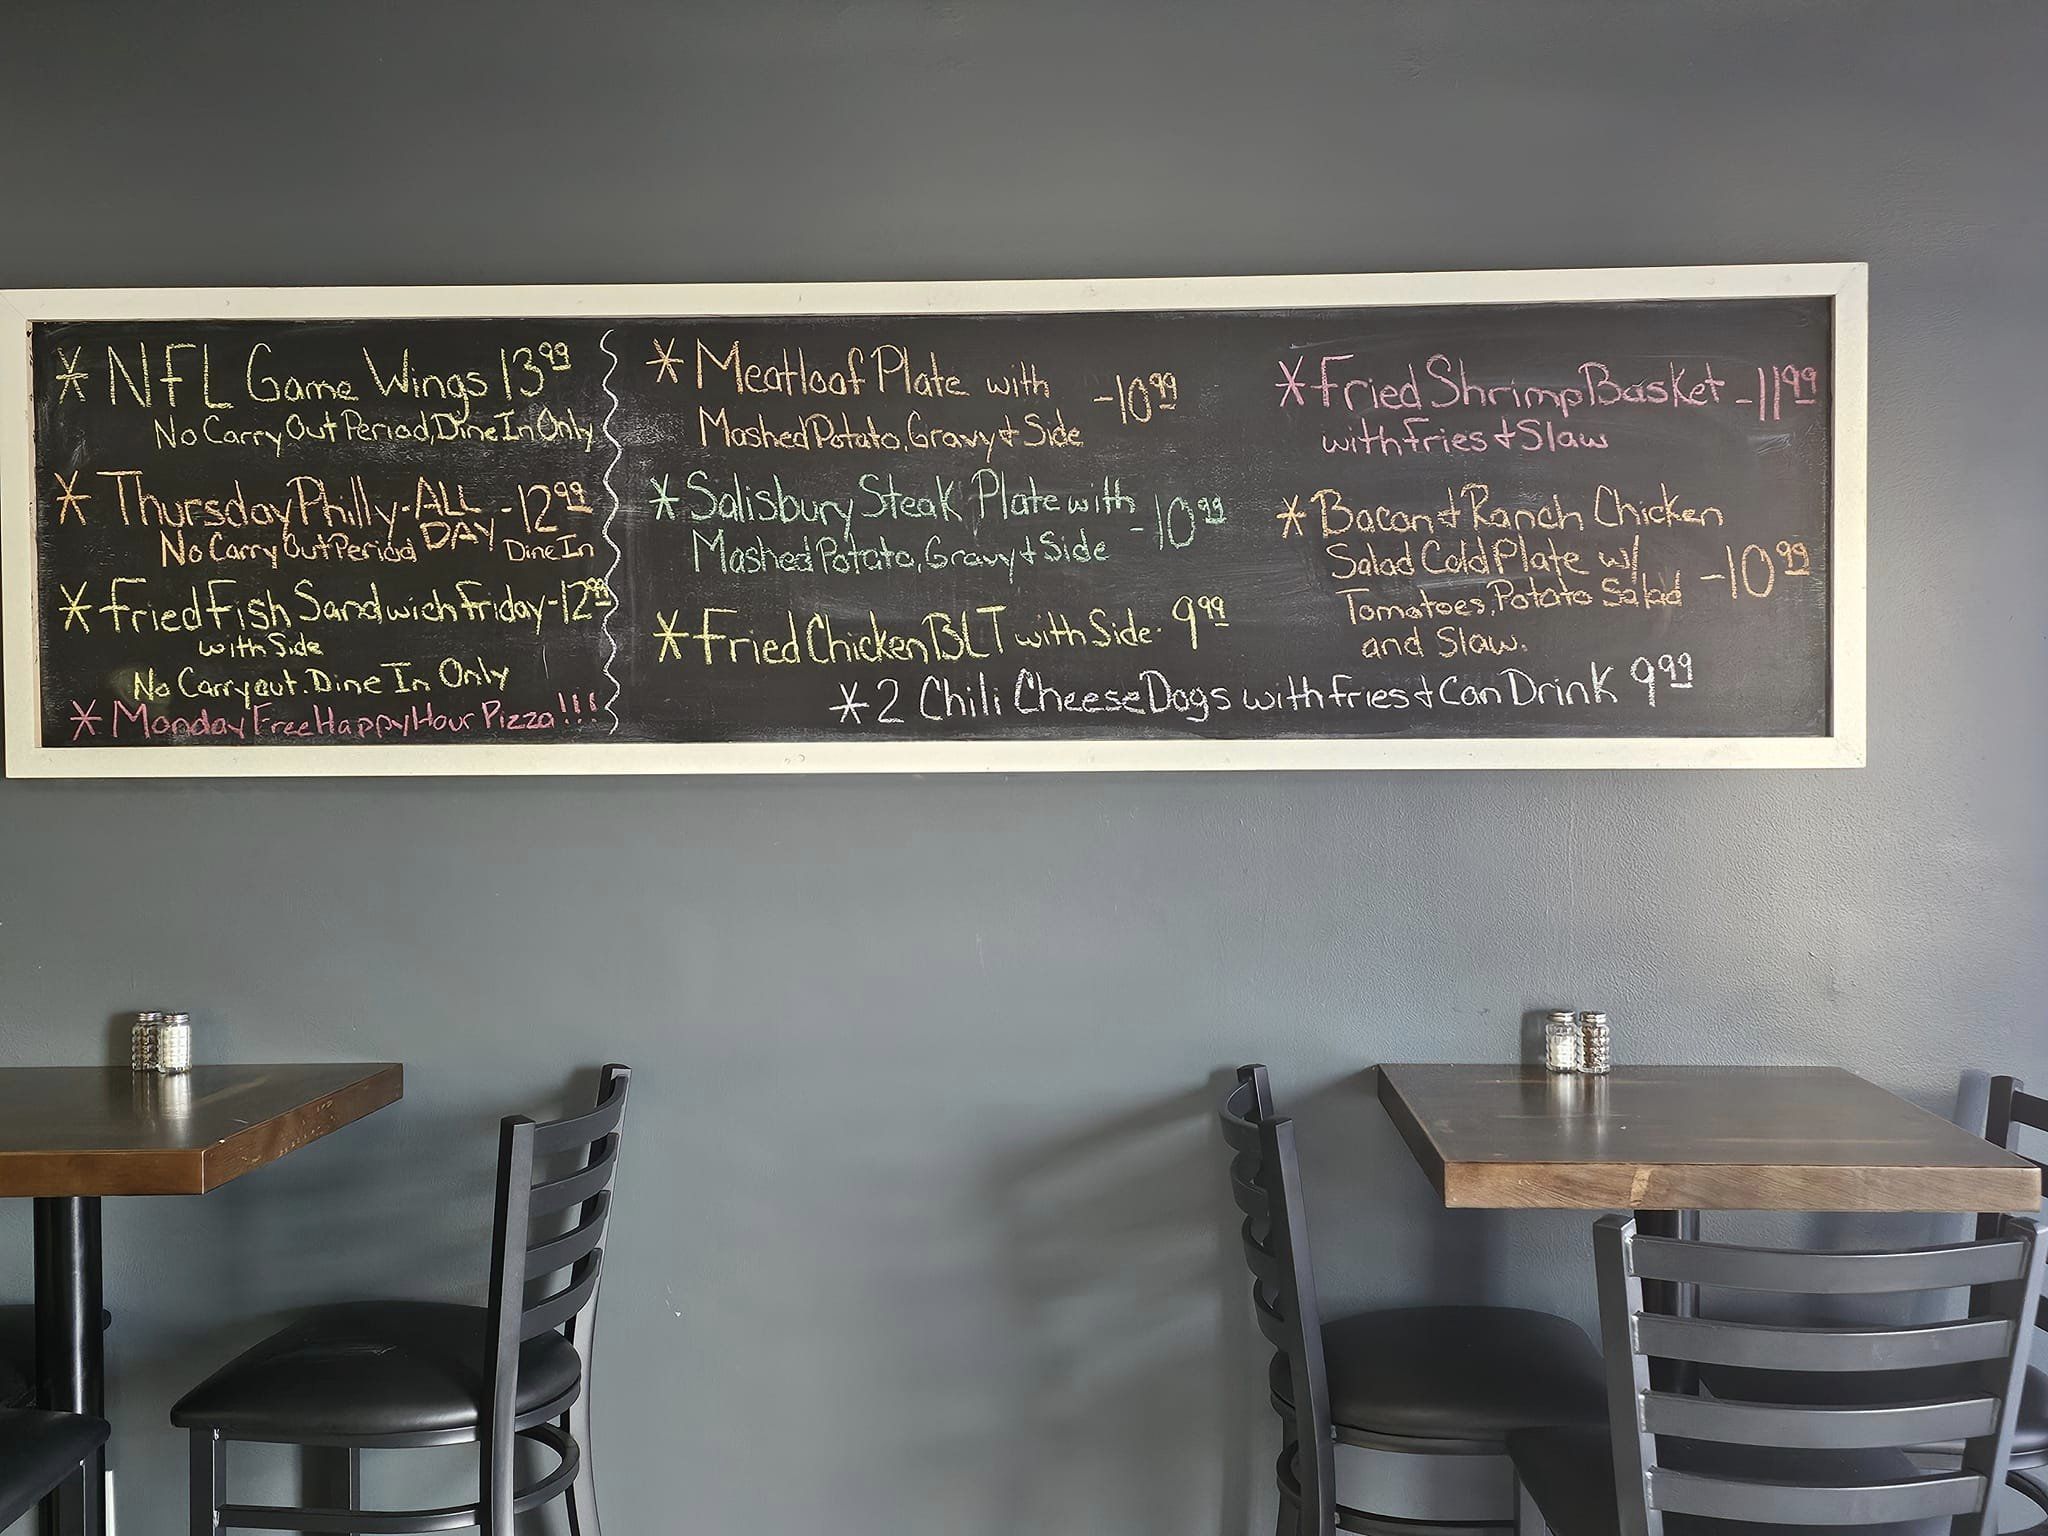 * NFL Game Wings 13.99
No Carry Out Period, Dine In Only
* Thursday Philly - ALL DAY - 12.99
No Carry Out Period Dine In
* Fried Fish Sandwich Friday - 12.99
with Side
No Carryout. Dine In Only
* Monday Free Happy Hour Pizza!!!
* Meatloaf Plate with - 10.99
Mashed Potato, Gravy & Side
* Salisbury Steak Plate with - 10.99
Mashed Potato, Gravy & Side
* Fried Chicken BLT with Side - 9.99
* Fried Shrimp Basket - 11.99
with fries & Slaw
* Bacon & Ranch Chicken
Salad Cold Plate w/ - 10.99
Tomatoes, Potato Salad
and Slaw.
* 2 Chili Cheese Dogs with fries & Can Drink 9.99